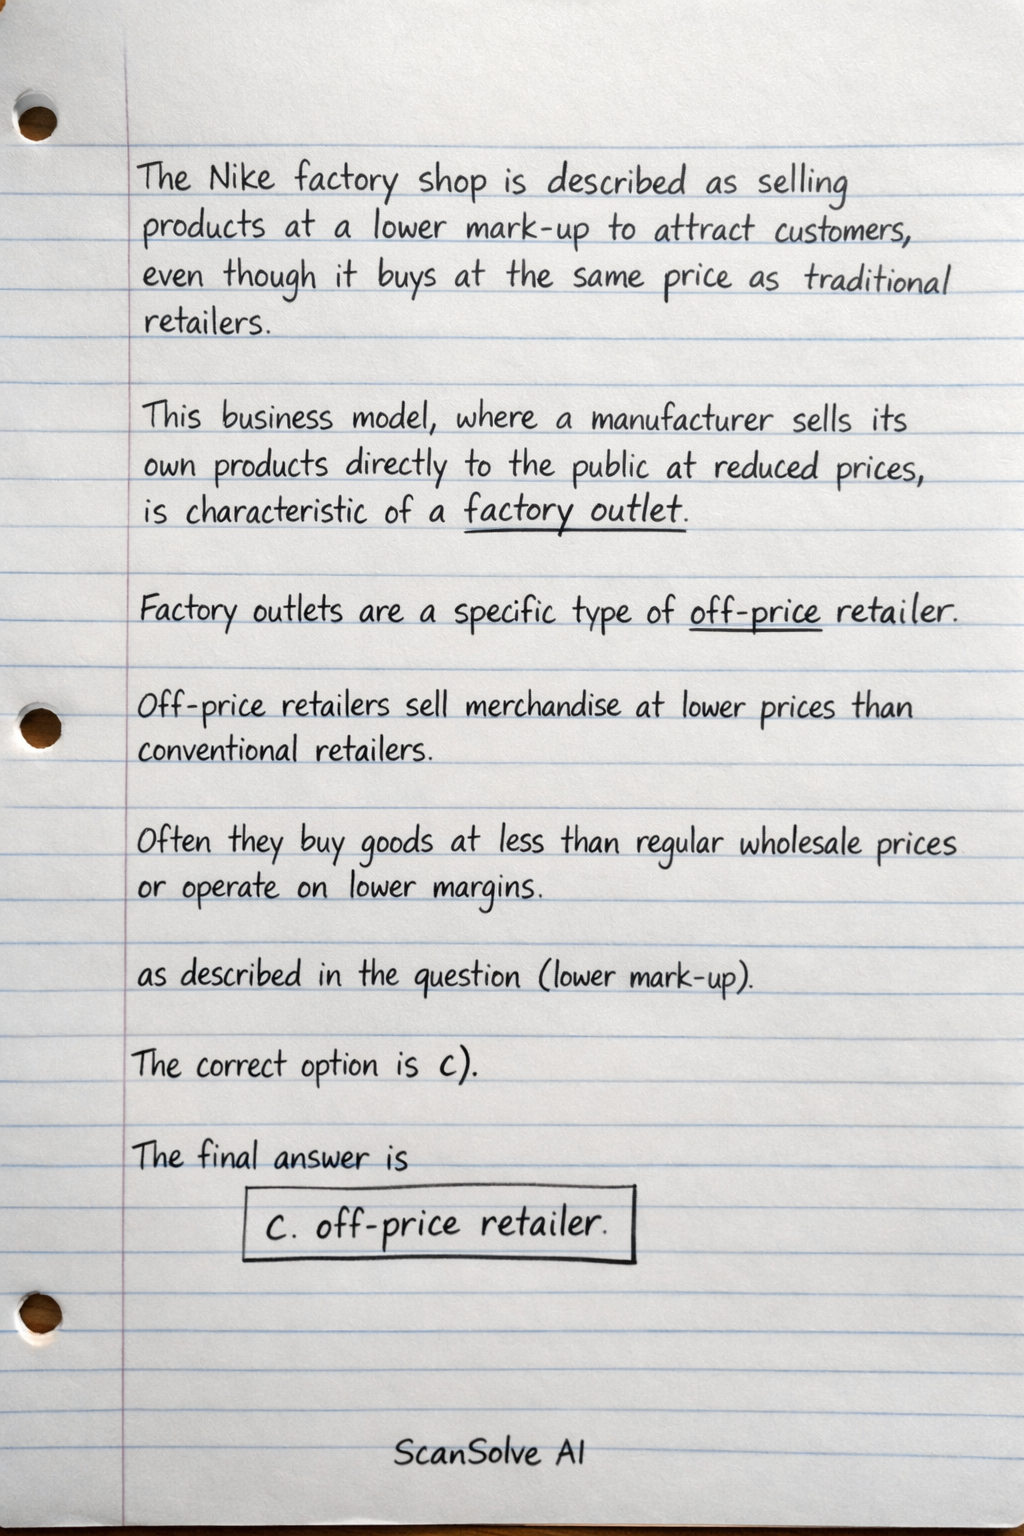 The Nike factory shop is described as selling
products at a lower mark-up to attract customers,
even though it buys at the same price as traditional
retailers.
This business model, where a manufacturer sells its
own products directly to the public at reduced prices,
is characteristic of a factory outlet.
Factory outlets are a specific type of off-price retailer.
Off-price retailers sell merchandise at lower prices than
conventional retailers.
Often they buy goods at less than regular wholesale prices
or operate on lower margins.
as described in the question (lower mark-up).
The correct option is c).
The final answer is
C. off-price retailer.
ScanSolve AI